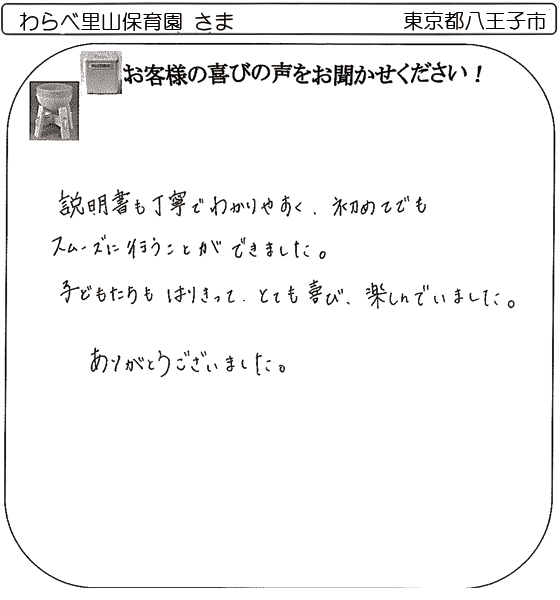 わらべ里山保育園 さま 東京都八王子市
お客様の喜びの声をお聞かせください！
説明書も丁寧でわかりやすく、初めてでも
スムーズに行うことができました。
子どもたちもはりきって、とても喜び、楽しんでいました。
ありがとうございました。